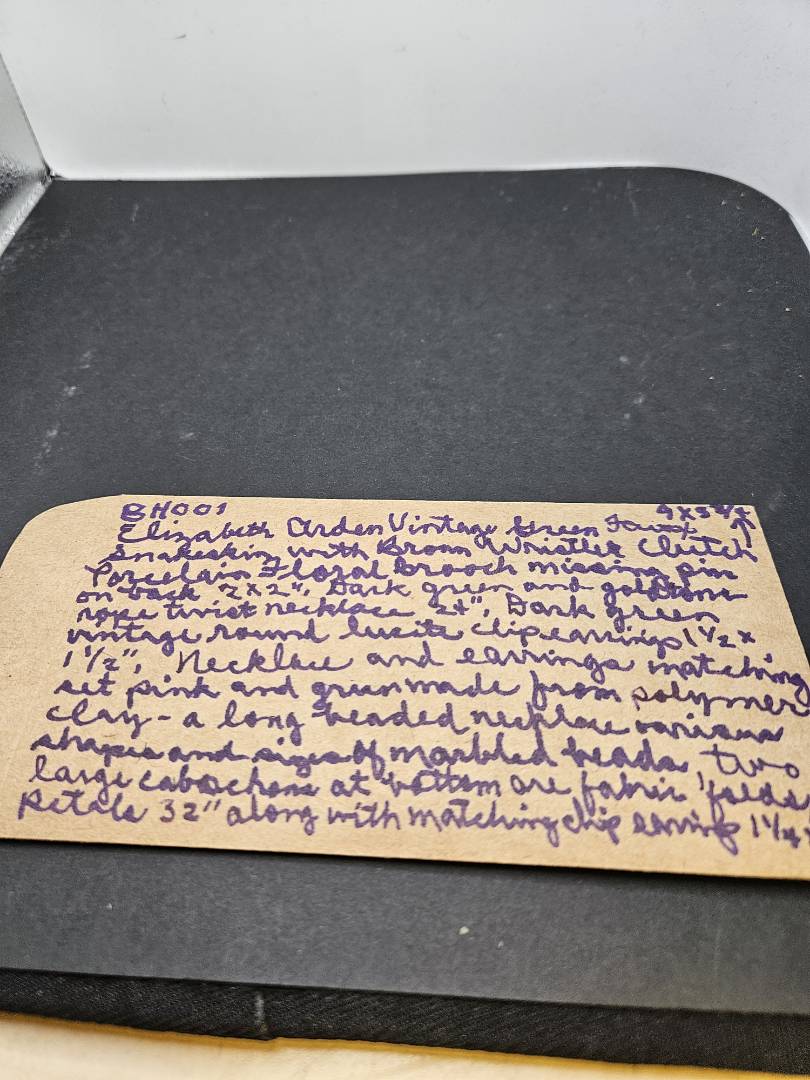 BH001 4 x 5 3/4 ↑
Elizabeth Arden Vintage Green Faux
Snakeskin with Brown Wristlet Clutch
Porcelain Floral brooch missing pin
on back 2x2", Dark green and goldtone
rope twist necklace 24", Dark green
vintage round lucite clip earrings 1 1/2 x
1 1/2", Necklace and earrings matching
set pink and green made from polymer
clay - a long beaded necklace various
shapes and sizes of marbled beads two
large cabochons at bottom are fabric folded
Petals 32" along with matching clip earrings 1 1/4